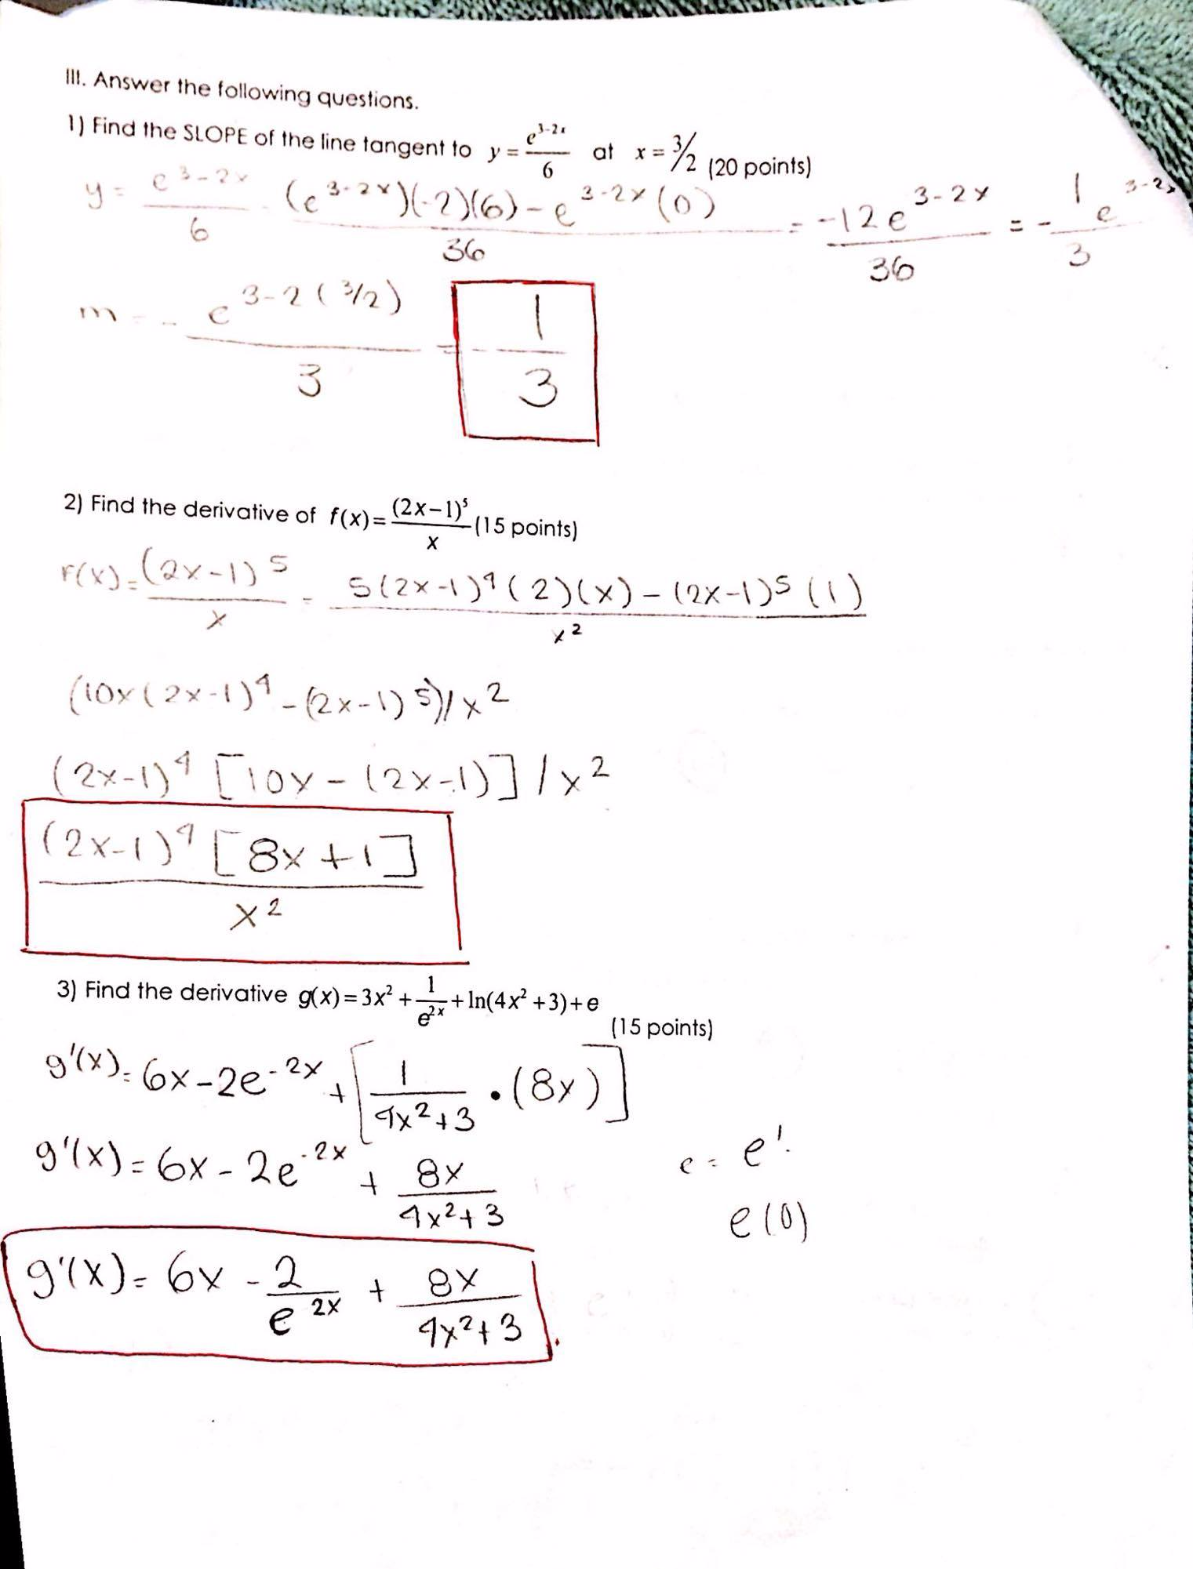 III. Answer the following questions.
1) Find the SLOPE of the line tangent to y = e^{3-2x}/6 at x = 3/2 (20 points)
y = e^{3-2x}/6 = (e^{3-2x})(-2)(6) - e^{3-2x}(0)/36 = -12e^{3-2x}/36 = -1/3 e^{3-2x}
m = -e^{3-2(3/2)}/3 = -1/3
2) Find the derivative of f(x) = (2x-1)^5/x (15 points)
f(x) = (2x-1)^5/x = 5(2x-1)^4(2)(x) - (2x-1)^5(1)/x^2
(10x(2x-1)^4 - (2x-1)^5)/x^2
(2x-1)^4 [10x - (2x-1)] / x^2
(2x-1)^4 [8x+1]/x^2
3) Find the derivative g(x) = 3x^2 + 1/e^{2x} + ln(4x^2+3) + e (15 points)
g'(x) = 6x - 2e^{-2x} + [1/4x^2+3 · (8x)]
g'(x) = 6x - 2e^{-2x} + 8x/4x^2+3
e = e^1.
e(0)
g'(x) = 6x - 2/e^{2x} + 8x/4x^2+3.